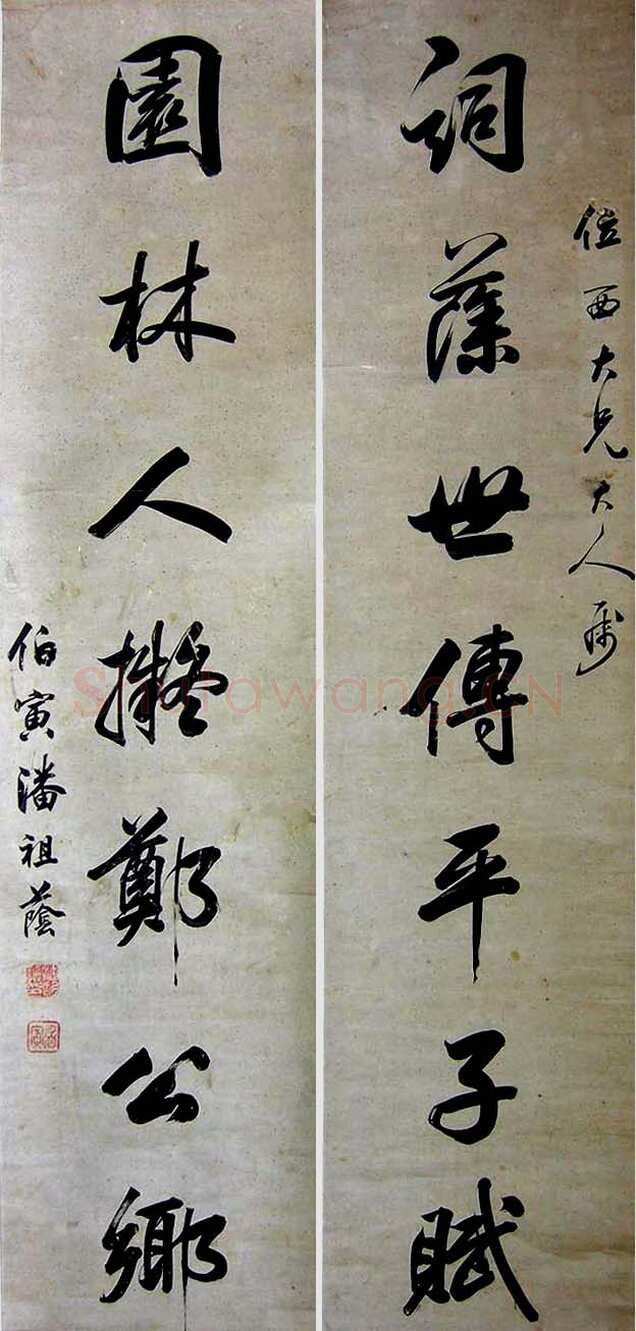 西大兄大人属
詞藻世傳平子賦
園林人擬鄭公鄉
伯寅潘祖蔭
Shufawang.CN